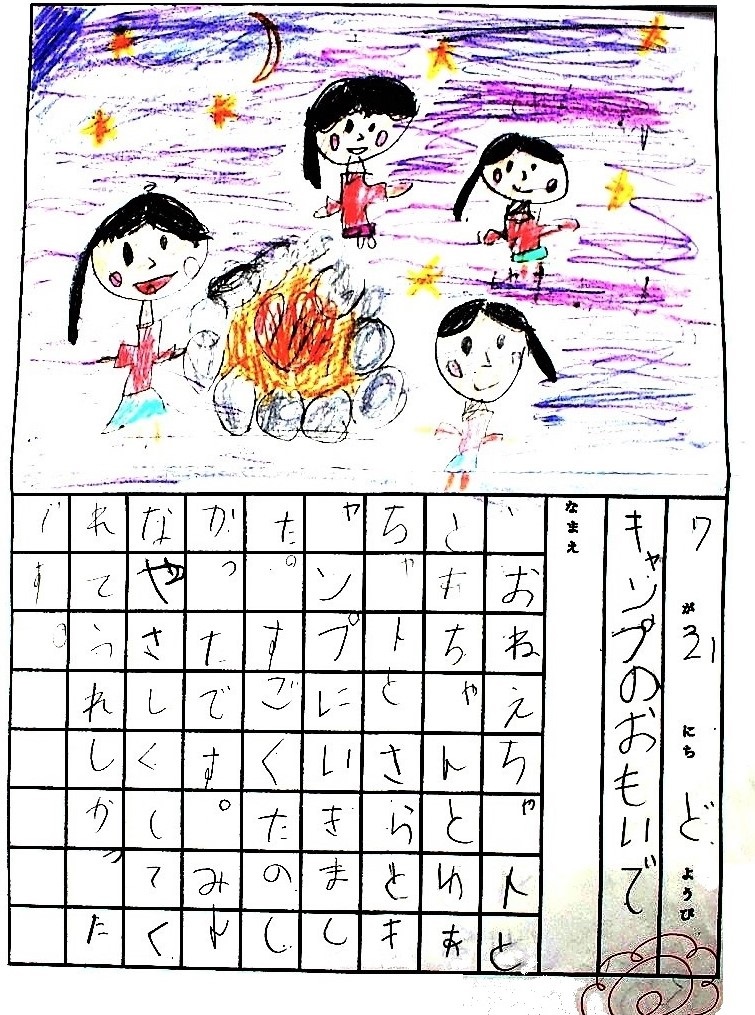 7が21にちどようび
キャンプのおもいで
なまえ
、おねえちゃんと
とあちゃんとゆあ
ちゃんとさらとキ
ャンプにいきまし
た。すごくたのし
かったです。みん
なやさしくしてく
れてうれしかった
です。